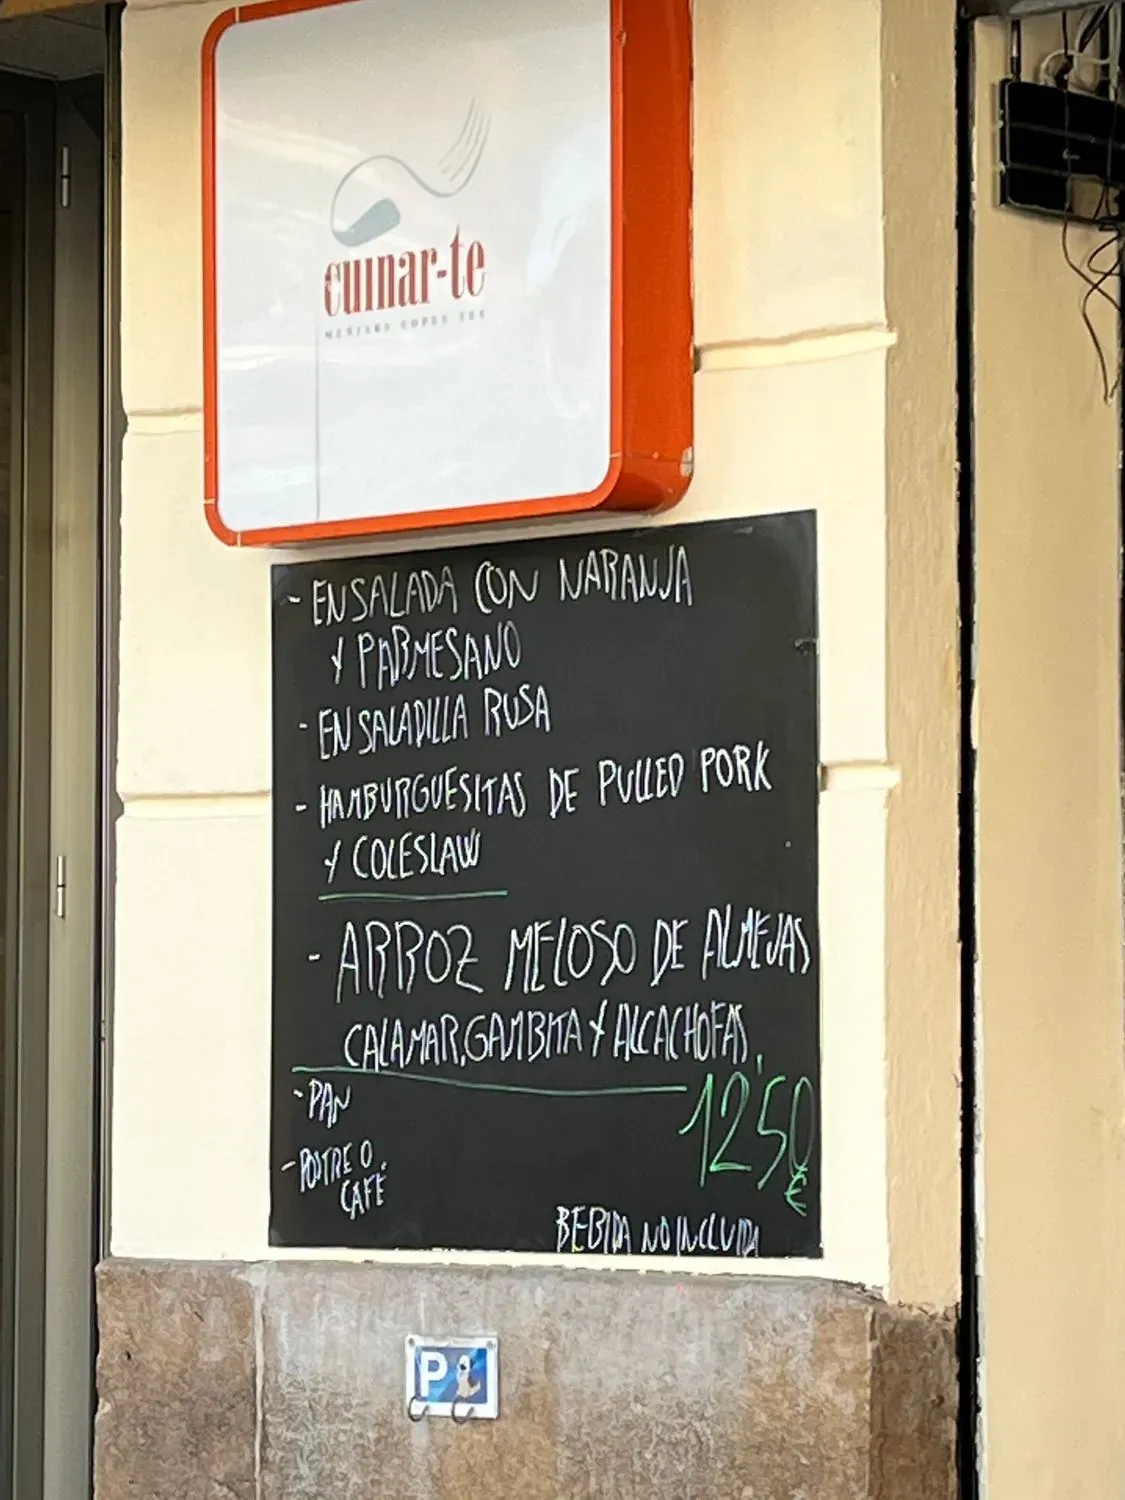 cuinar-te
- ENSALADA CON NARANJA
Y PARMESANO
- ENSALADILLA RUSA
- HAMBURGUESITAS DE PULLED PORK
Y COLESLAW
- ARROZ MELOSO DE ALMEJAS
CALAMAR, GAMBITA Y ALCACHOFAS.
- PAN
12'50
€
- POSTRE O
CAFÉ
BEBIDA NO INCLUIDA
P